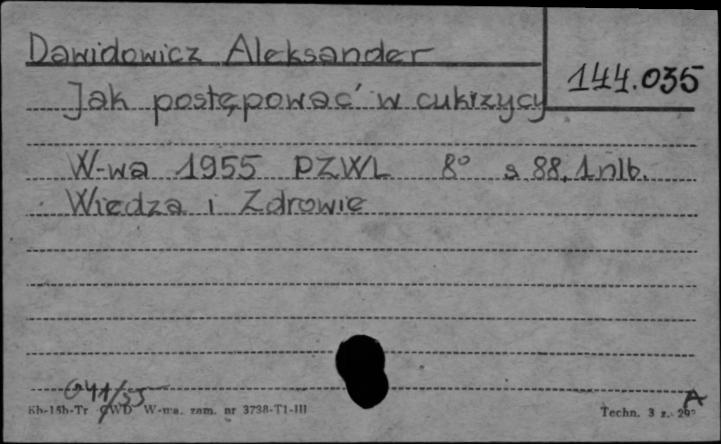 Dawidowicz Aleksander
144.035
Jak postępować w cukrzycy
W-wa 1955 PZWL 8° s 88, 1 nlb.
Wiedza i Zdrowie
041/55
Kb-15b-Tr CWD W-wa. zam. nr 3738-T1-III
Techn. 3 z. 29
A